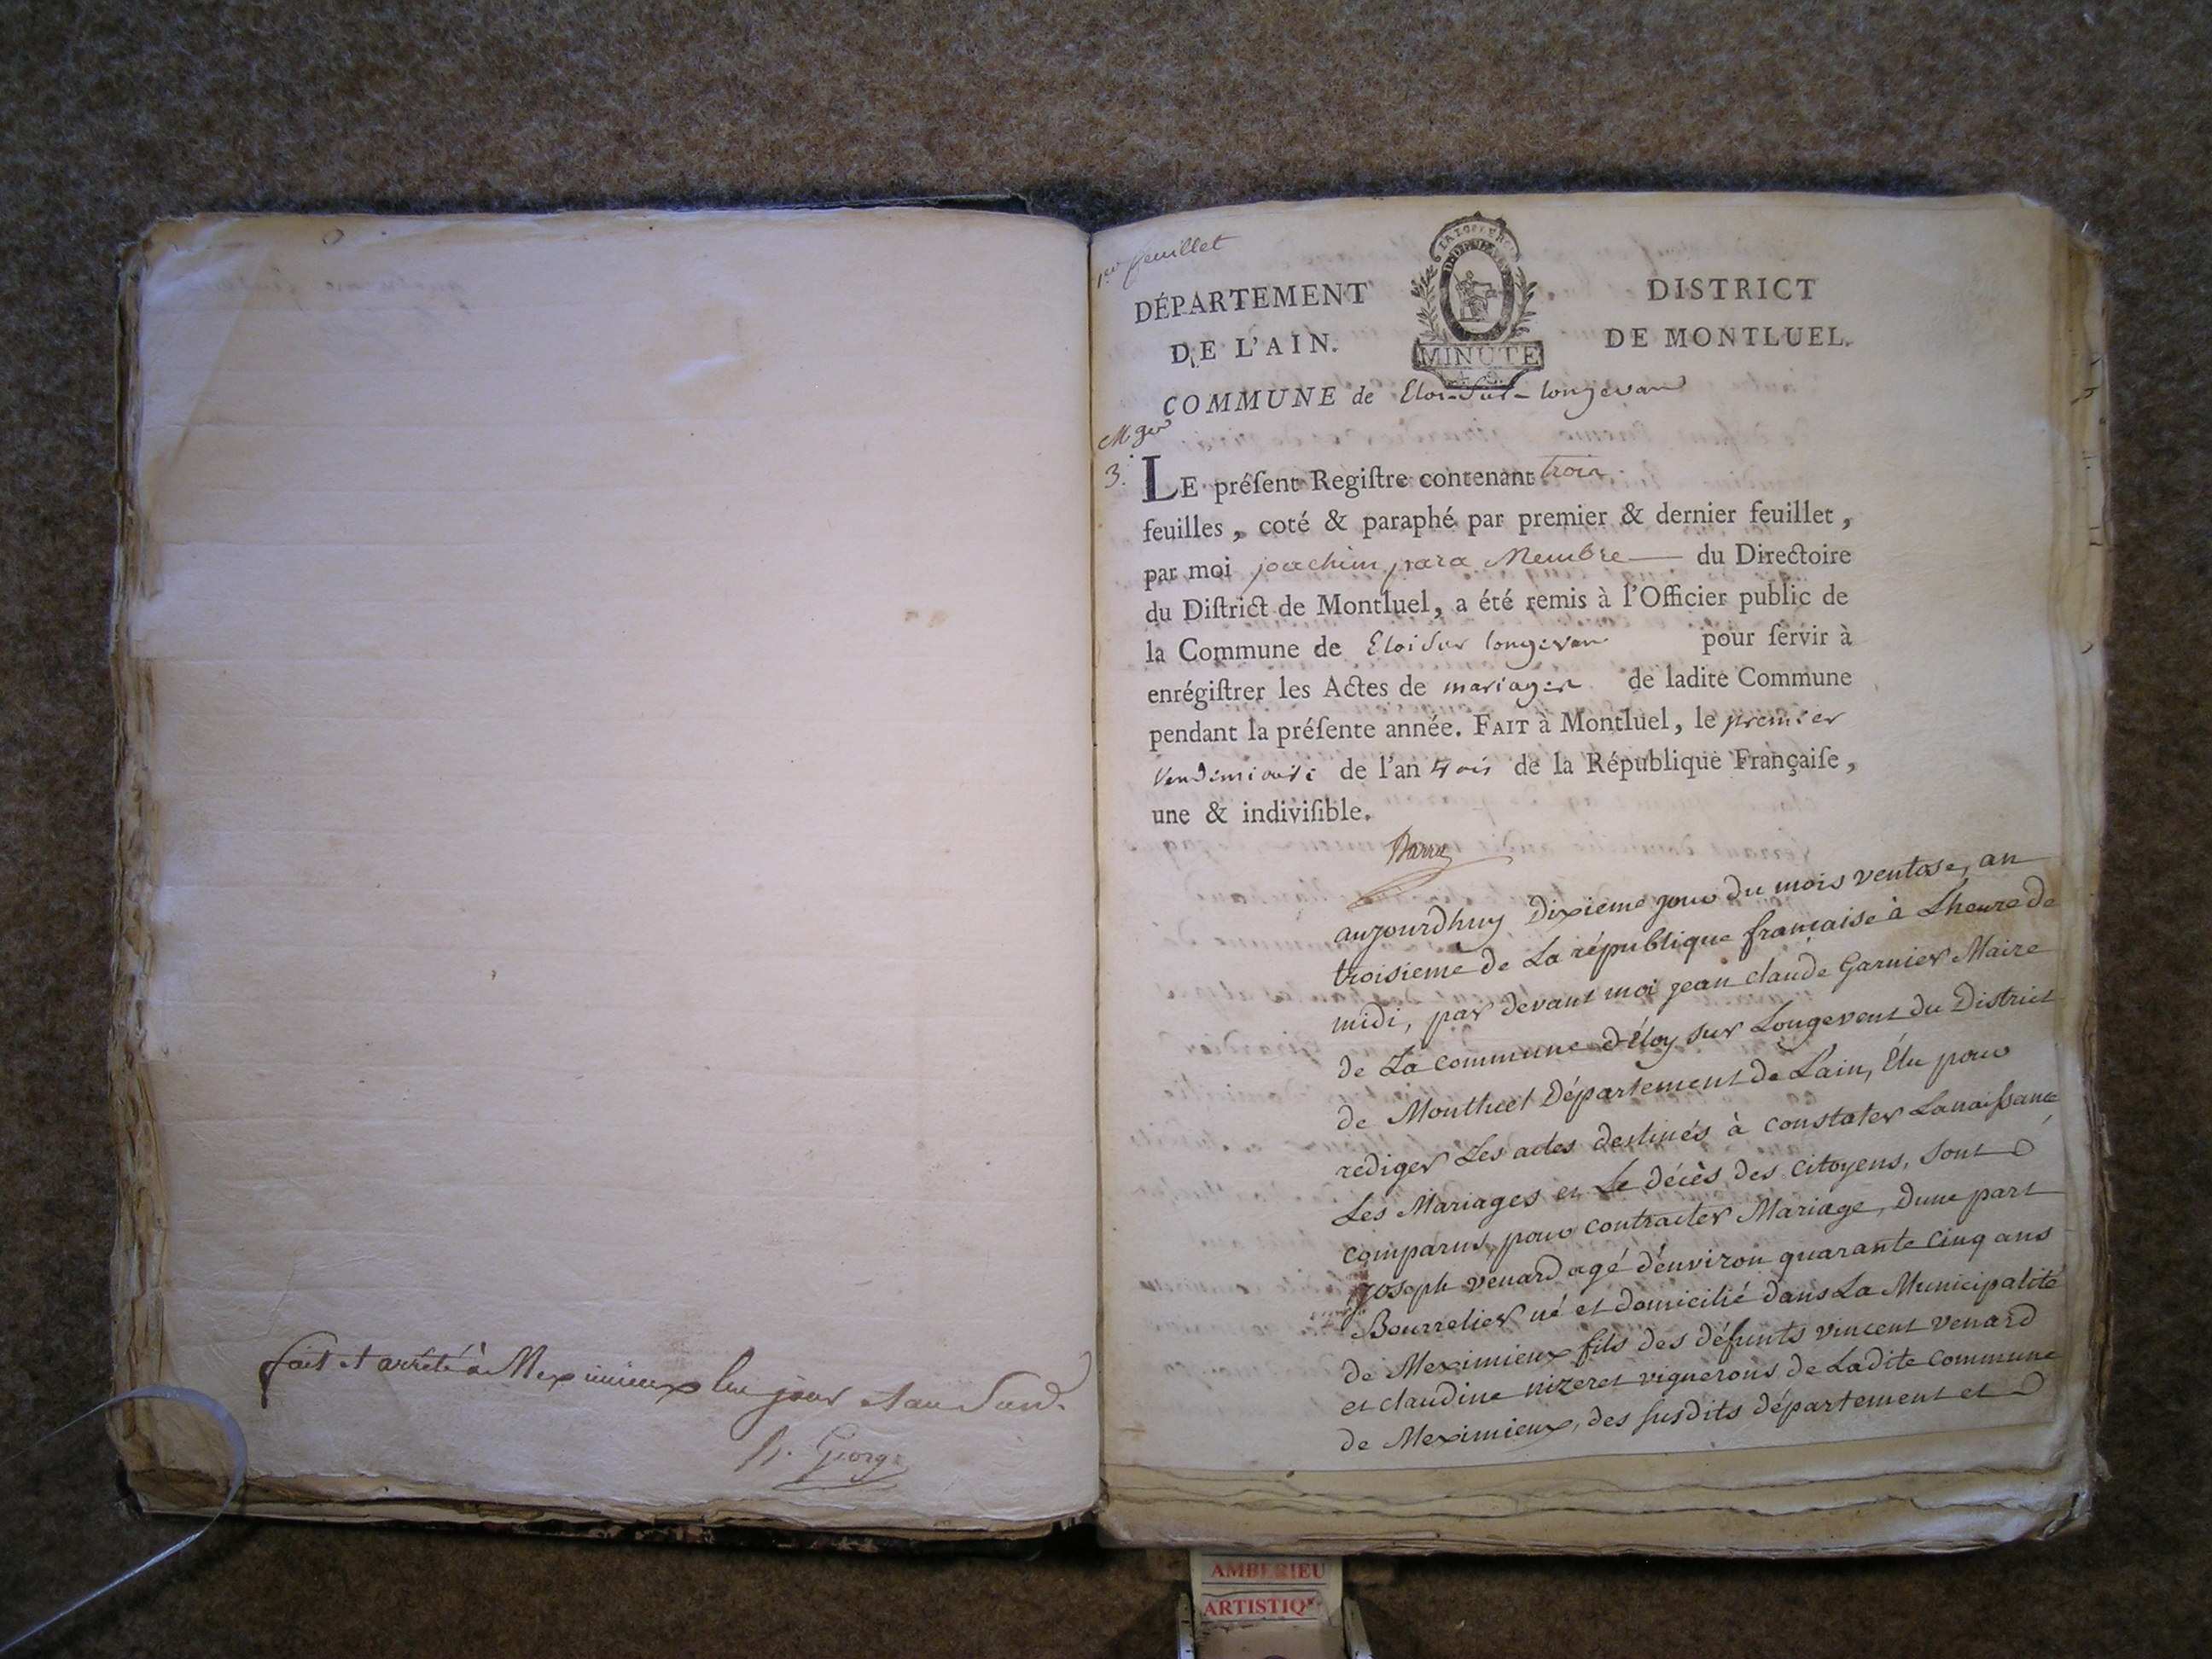 fait et arrêté à Meximieux les jour et an Susd.
George
1er feuillet
DÉPARTEMENT
DE L'AIN.
MINUTE
DISTRICT
DE MONTLUEL.
COMMUNE de Eloi-Sur-longevan
3.
LE préſent Regiſtre contenant trois
feuilles, coté & paraphé par premier & dernier feuillet,
par moi joachim para Membre du Directoire
du Diſtrict de Montluel, a été remis à l'Officier public de
la Commune de Eloi Sur longevan pour ſervir à
enrégiſtrer les Actes de mariages de ladite Commune
pendant la préſente année. FAIT à Montluel, le premier
Vendemiaire de l'an trois de la République Françaiſe,
une & indiviſible.
aujourdhuy dixieme jour du mois ventose, an
troisieme de La république française à Lheure de
midi, par devant moi jean claude Garnier Maire
de La commune d'éloy sur Longevent du District
de Montluel Département de Lain, Élu pour
rediger Les actes destinés à constater La naissance
Les Mariages et Le décès des citoyens, sont
comparus, pour contracter Mariage, Dune part
joseph venard agé d'environ quarante cinq ans
Bourrelier né et domicilié dans La Municipalité
de Meximieux fils des défunts vincent venard
et claudine nizeret vignerons de Ladite commune
de Meximieux, des susdits département et
AMBERIEU
ARTISTIQ